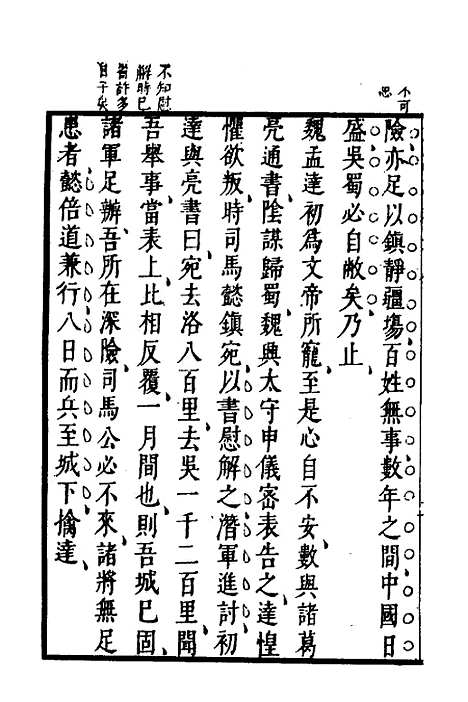 不可
思
險亦足以鎮靜疆場百姓無事數年之間中國日
盛吳蜀必自敝矣乃止
魏孟達初爲文帝所寵至是心自不安數與諸葛
亮通書陰謀歸蜀魏興太守申儀密表告之達惶
懼欲叛時司馬懿鎮宛以書慰解之潛軍進討初
不知慰
解時已
費許多
日子矣
達與亮書曰宛去洛八百里去吳一千二百里聞
吾舉事當表上比相反覆一月間也則吾城已固
諸軍足辦吾所在深險司馬公必不來諸將無足
患者懿倍道兼行八日而兵至城下擒達